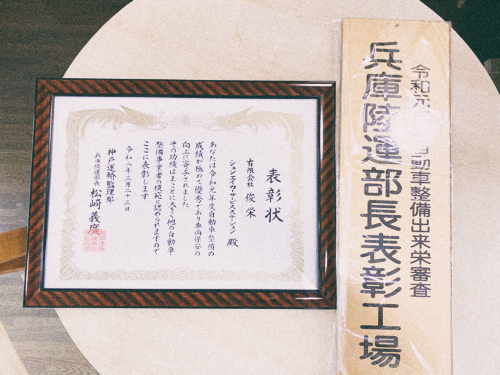 表彰状
有限会社 俊栄
シュンエイカーサービスステーション 殿
あなたは令和元年度自動車整備の
成績が極めて優秀であり車両保安の
向上に寄与されました
その功績はまことに大きく他の自動車
整備事業者の模範と認められますので
ここに表彰します
令和二年三月二十三日
神戸運輸監理部
兵庫陸運部長 松﨑義彦
令和元 自動車整備出来栄審査
兵庫陸運部長表彰工場